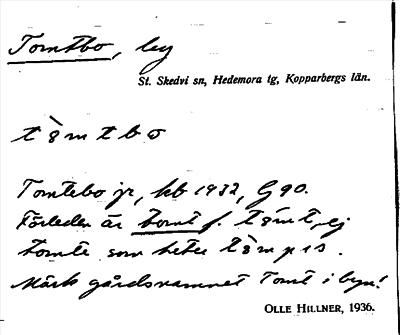 Tomtbo, by
St. Skedvi sn, Hedemora tg, Kopparbergs län.
tòmtbo
Tomtebo jr, kb 1932, G 90.
Förleden är tomt f. tòmt, ej
tomte som heter
Märk gårdsnamnet Tomt i byn!
OLLE HILLNER, 1936.